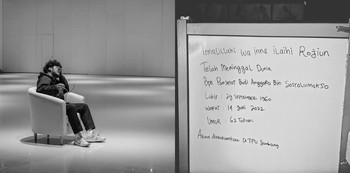 Innalillahi wa inna ilaihi Rojiun
Telah Meninggal Dunia
Bpk. Budi Anggoro Bin
Lahir : 29 September 1960
Wafat : 14 Juli 2022
Umur : 62 Tahun
Akan dimakamkan Di TPU